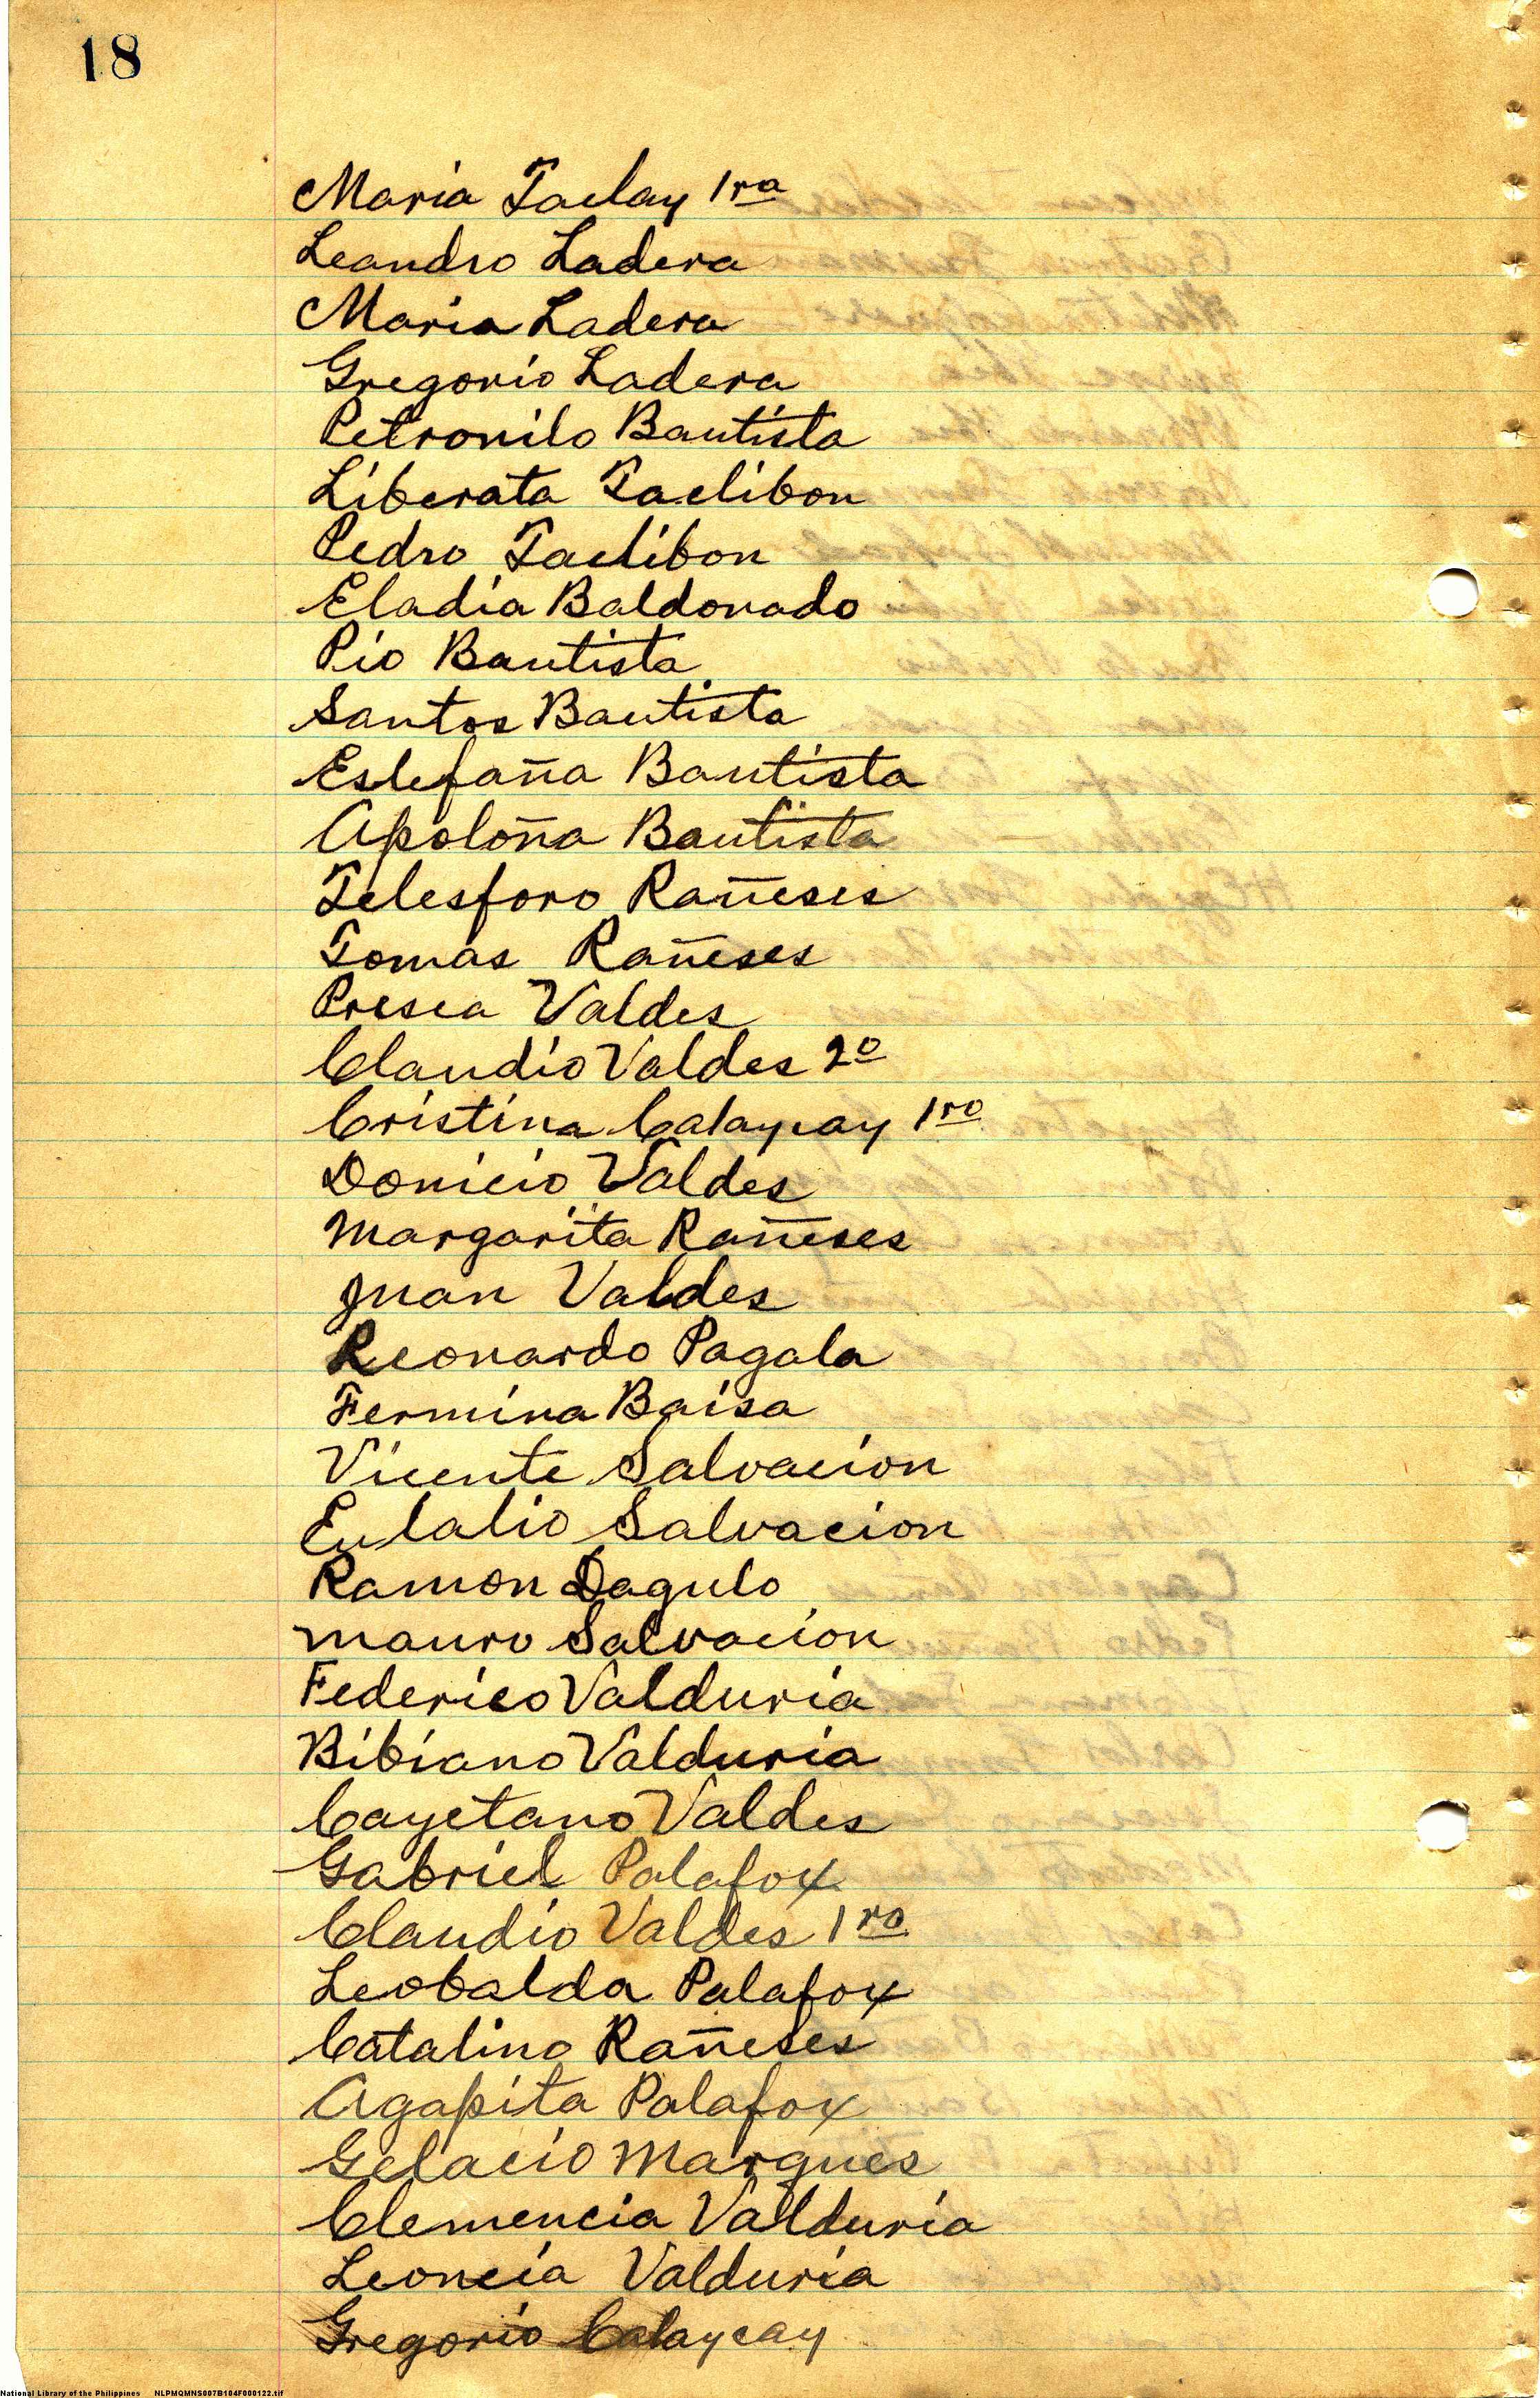 18
Maria Taclay 1ra
Leandro Ladera
Maria Ladera
Gregorio Ladera
Petronilo Bautista
Liberata Taclibon
Pedro Taclibon
Eladia Baldovado
Pio Bautista
Santos Bautista
Eslefaña Bautista
Apoloña Bautista
Telesforo Rañeses
Tomas Rañeses
Presca Valdes
Claudio Valdes 2o
Cristina Calaycay 1ro
Donicio Valdes
Margarita Rañeses
Juan Valdes
Leonardo Pagala
Fermina Baisa
Vicente Salvacion
Eulalio Salvacion
Ramon Dagulo
Mauro Salvacion
Federico Valduria
Bibiano Valduria
Cayetano Valdes
Gabriel Palafox
Claudio Valdes 1ro
Leobalda Palafox
Catalino Rañeses
Agapita Palafox
Gelacio Marques
Clemencia Valduria
Leoncia Valduria
Gregorio Calaycay
National Library of the Philippines NLPMQMNS007B104F000122.tif